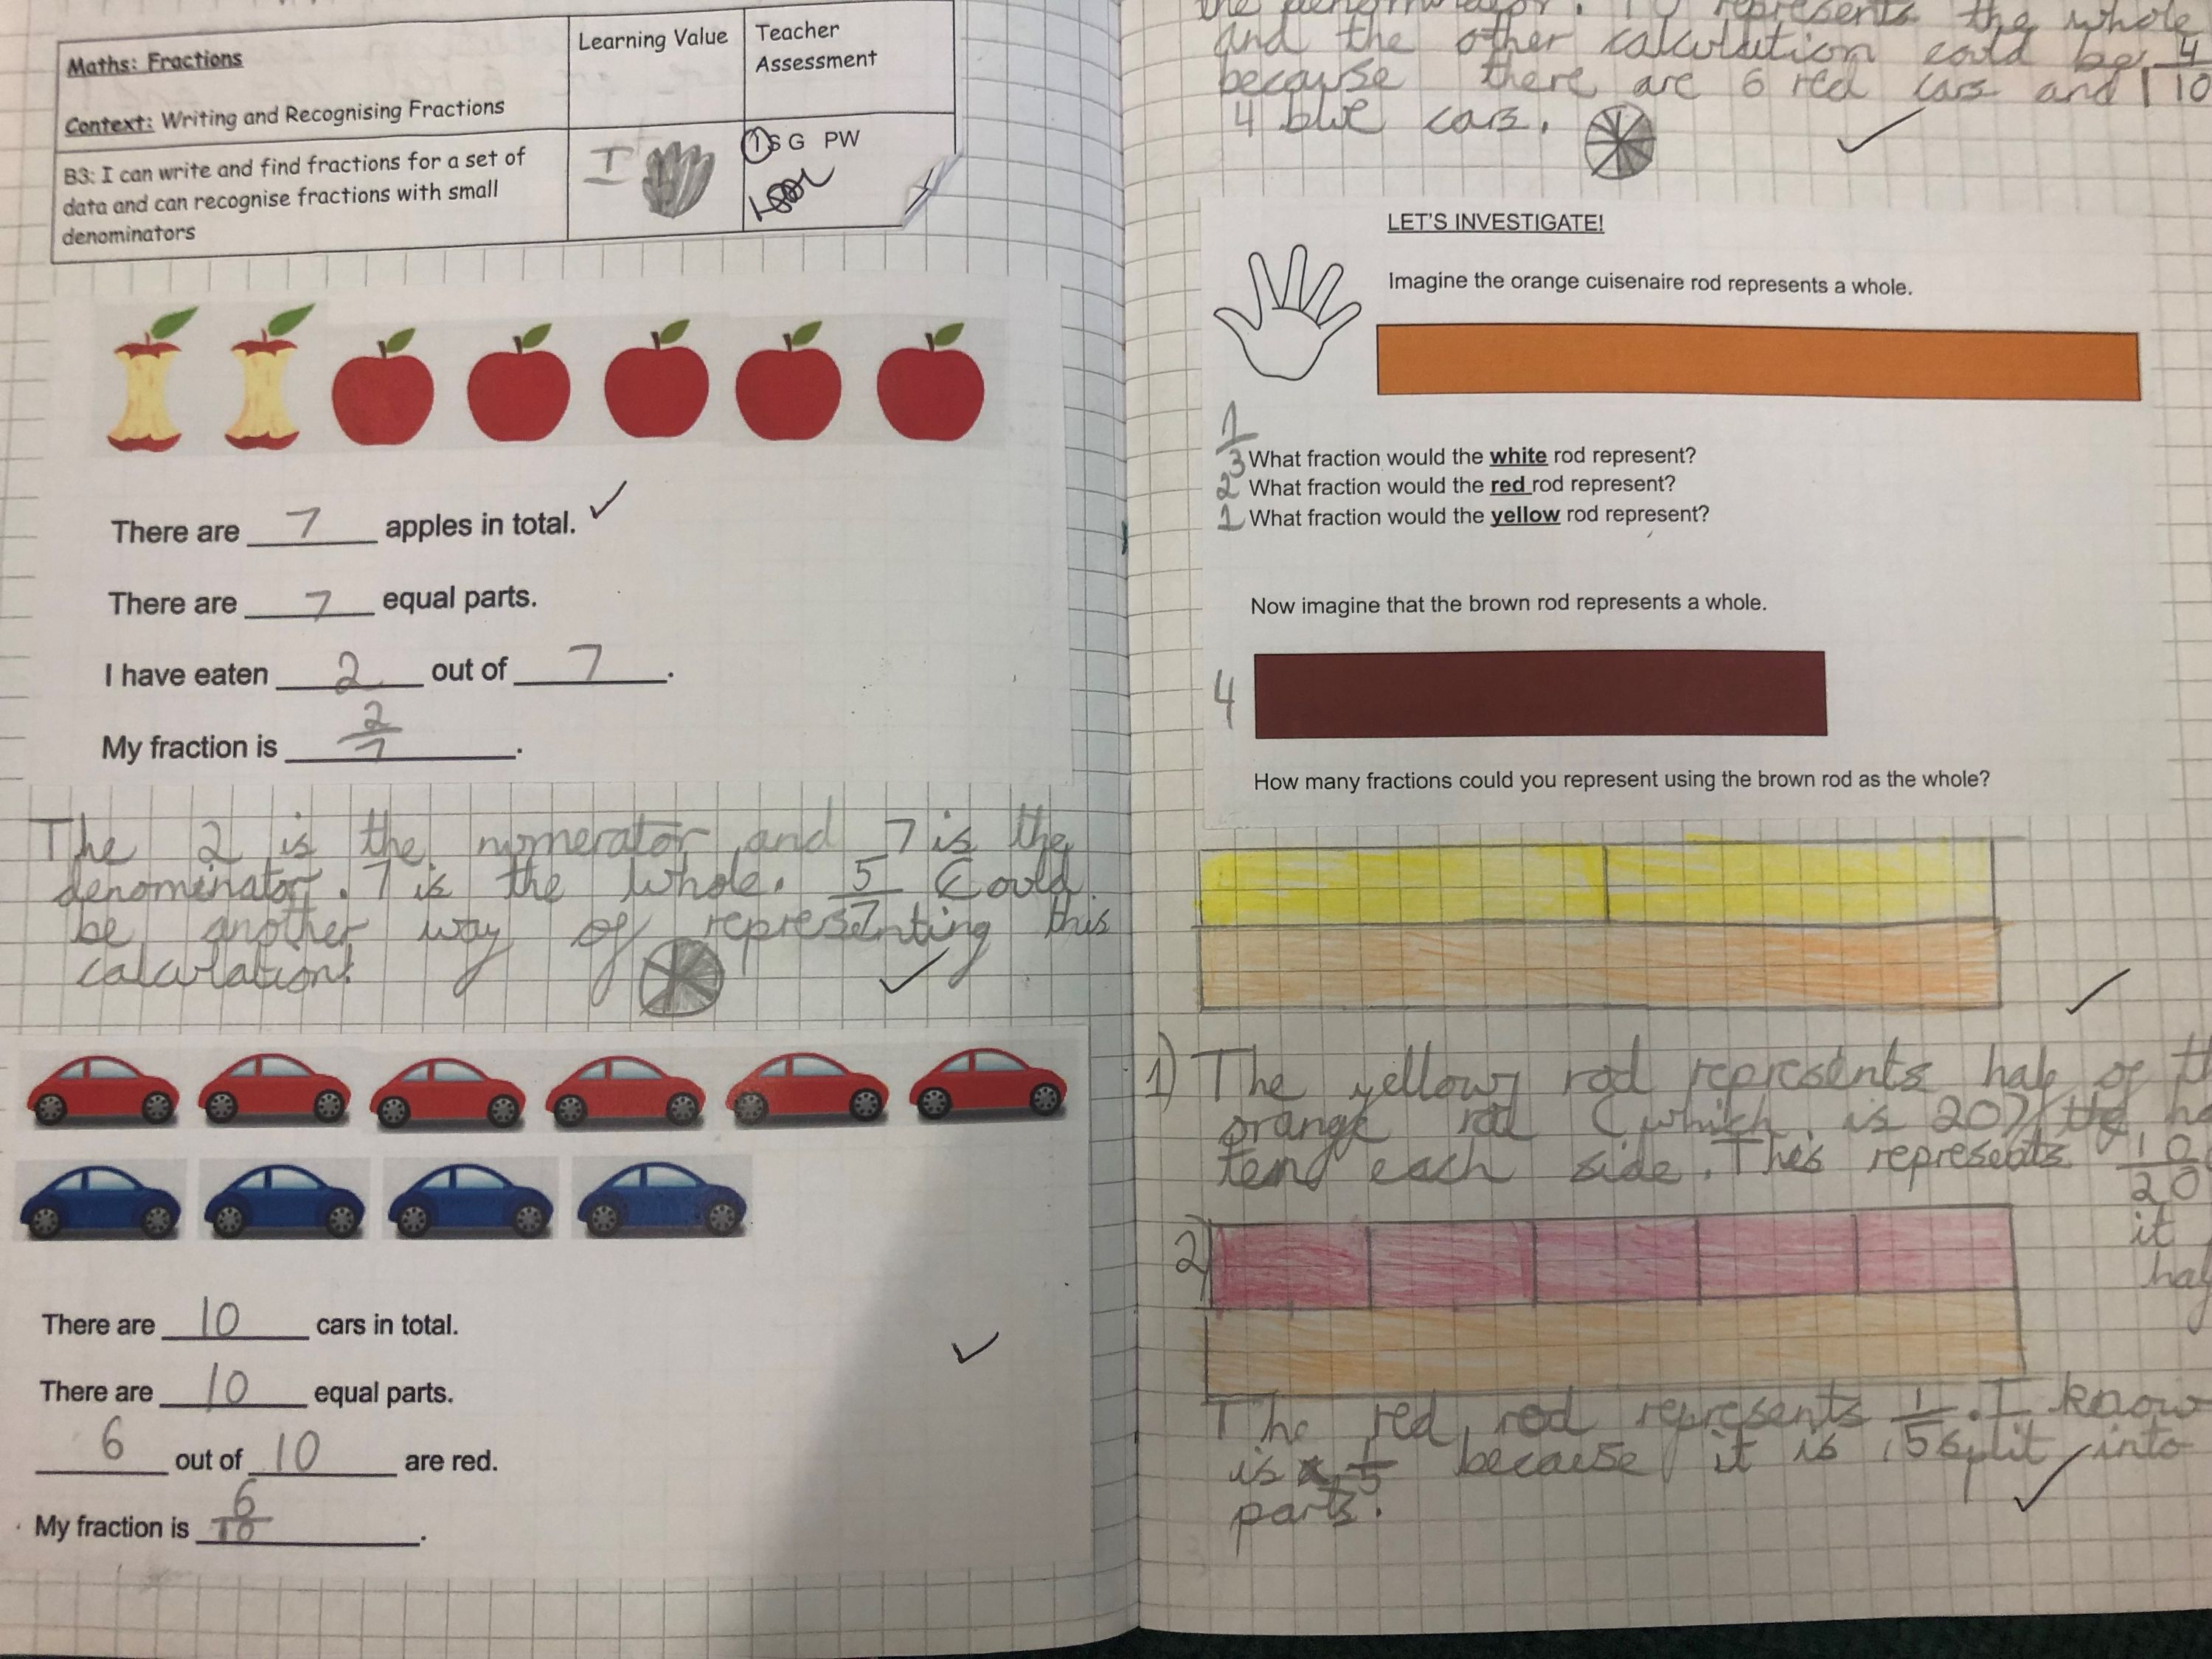 Maths: Fractions
Context: Writing and Recognising Fractions
Learning Value
Teacher
Assessment
B3: I can write and find fractions for a set of
data and can recognise fractions with small
denominators
I
I S G PW
There are 7 apples in total.
There are 7 equal parts.
I have eaten 2 out of 7.
My fraction is 2/7.
The 2 is the numerator and 7 is the
denominator. 7 is the whole. 5/7 Could
be another way of representing this
calculation!
There are 10 cars in total.
There are 10 equal parts.
6 out of 10 are red.
My fraction is 6/10.
the denominator. 10 represents the whole
and the other calculation could be 4/10
because there are 6 red cars and
4 blue cars.
LET'S INVESTIGATE!
Imagine the orange cuisenaire rod represents a whole.
1
3 What fraction would the white rod represent?
2 What fraction would the red rod represent?
1 What fraction would the yellow rod represent?
Now imagine that the brown rod represents a whole.
4
How many fractions could you represent using the brown rod as the whole?
1) The yellowy rod represents half of
orange rod (which is 20)
ten each side. This represents 10/20
it
2)
The red rod represents 1/5. I know
is 1/5 because it is 5 split into
parts.